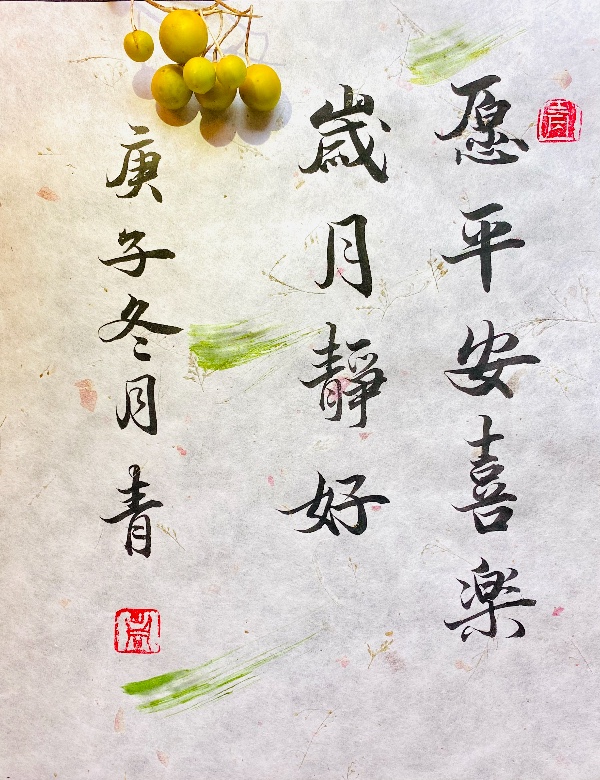 愿平安喜楽
歳月靜好
庚子冬月青